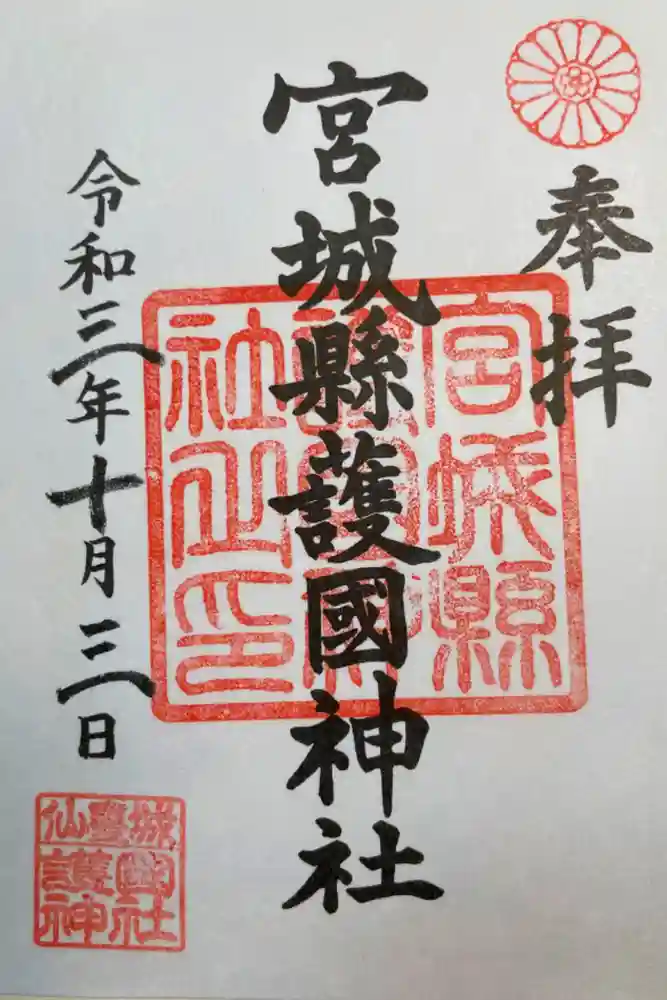 奉拝
宮城縣護國神社
令和三年十月三日
宮城縣
護國神
社之印
仙臺城
護國
神社